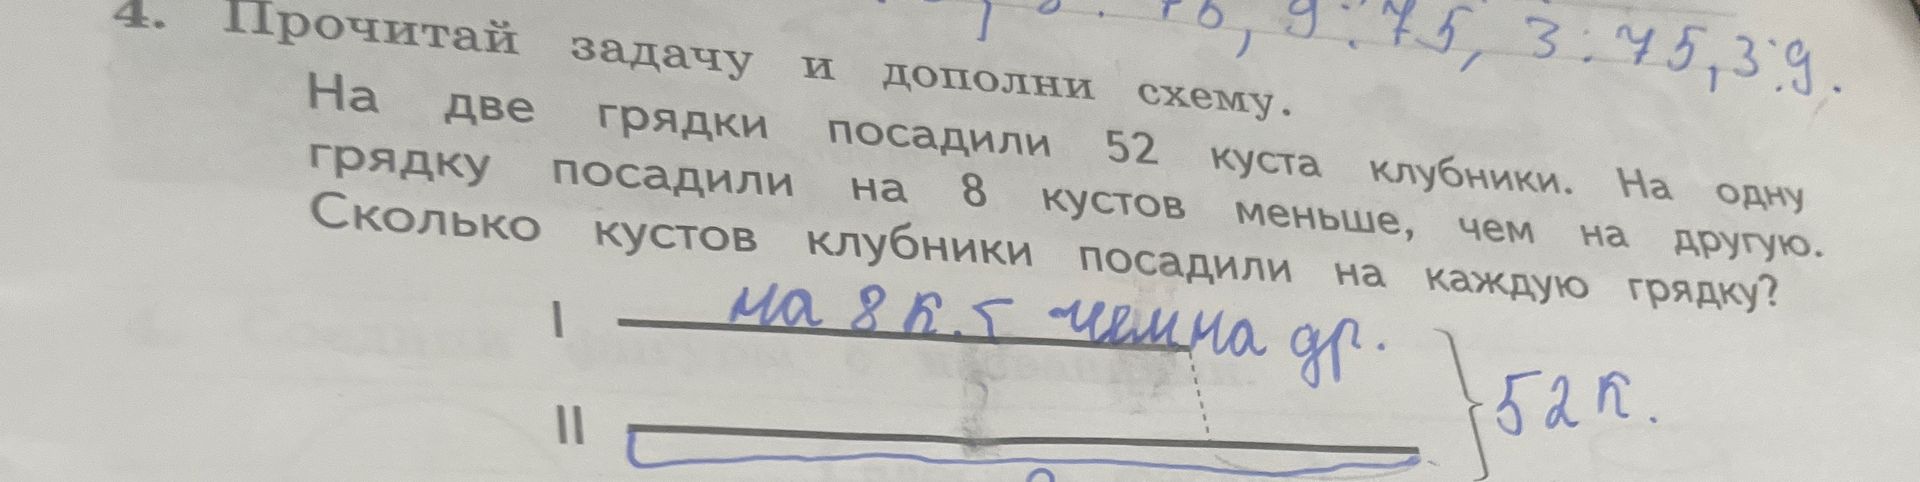 75, 9 : 75, 3 : 75, 3 : 9.
4. Прочитай задачу и дополни схему.
На две грядки посадили 52 куста клубники. На одну
грядку посадили на 8 кустов меньше, чем на другую.
Сколько кустов клубники посадили на каждую грядку?
I на 8 к. < чем на др.
52 к.
II
?